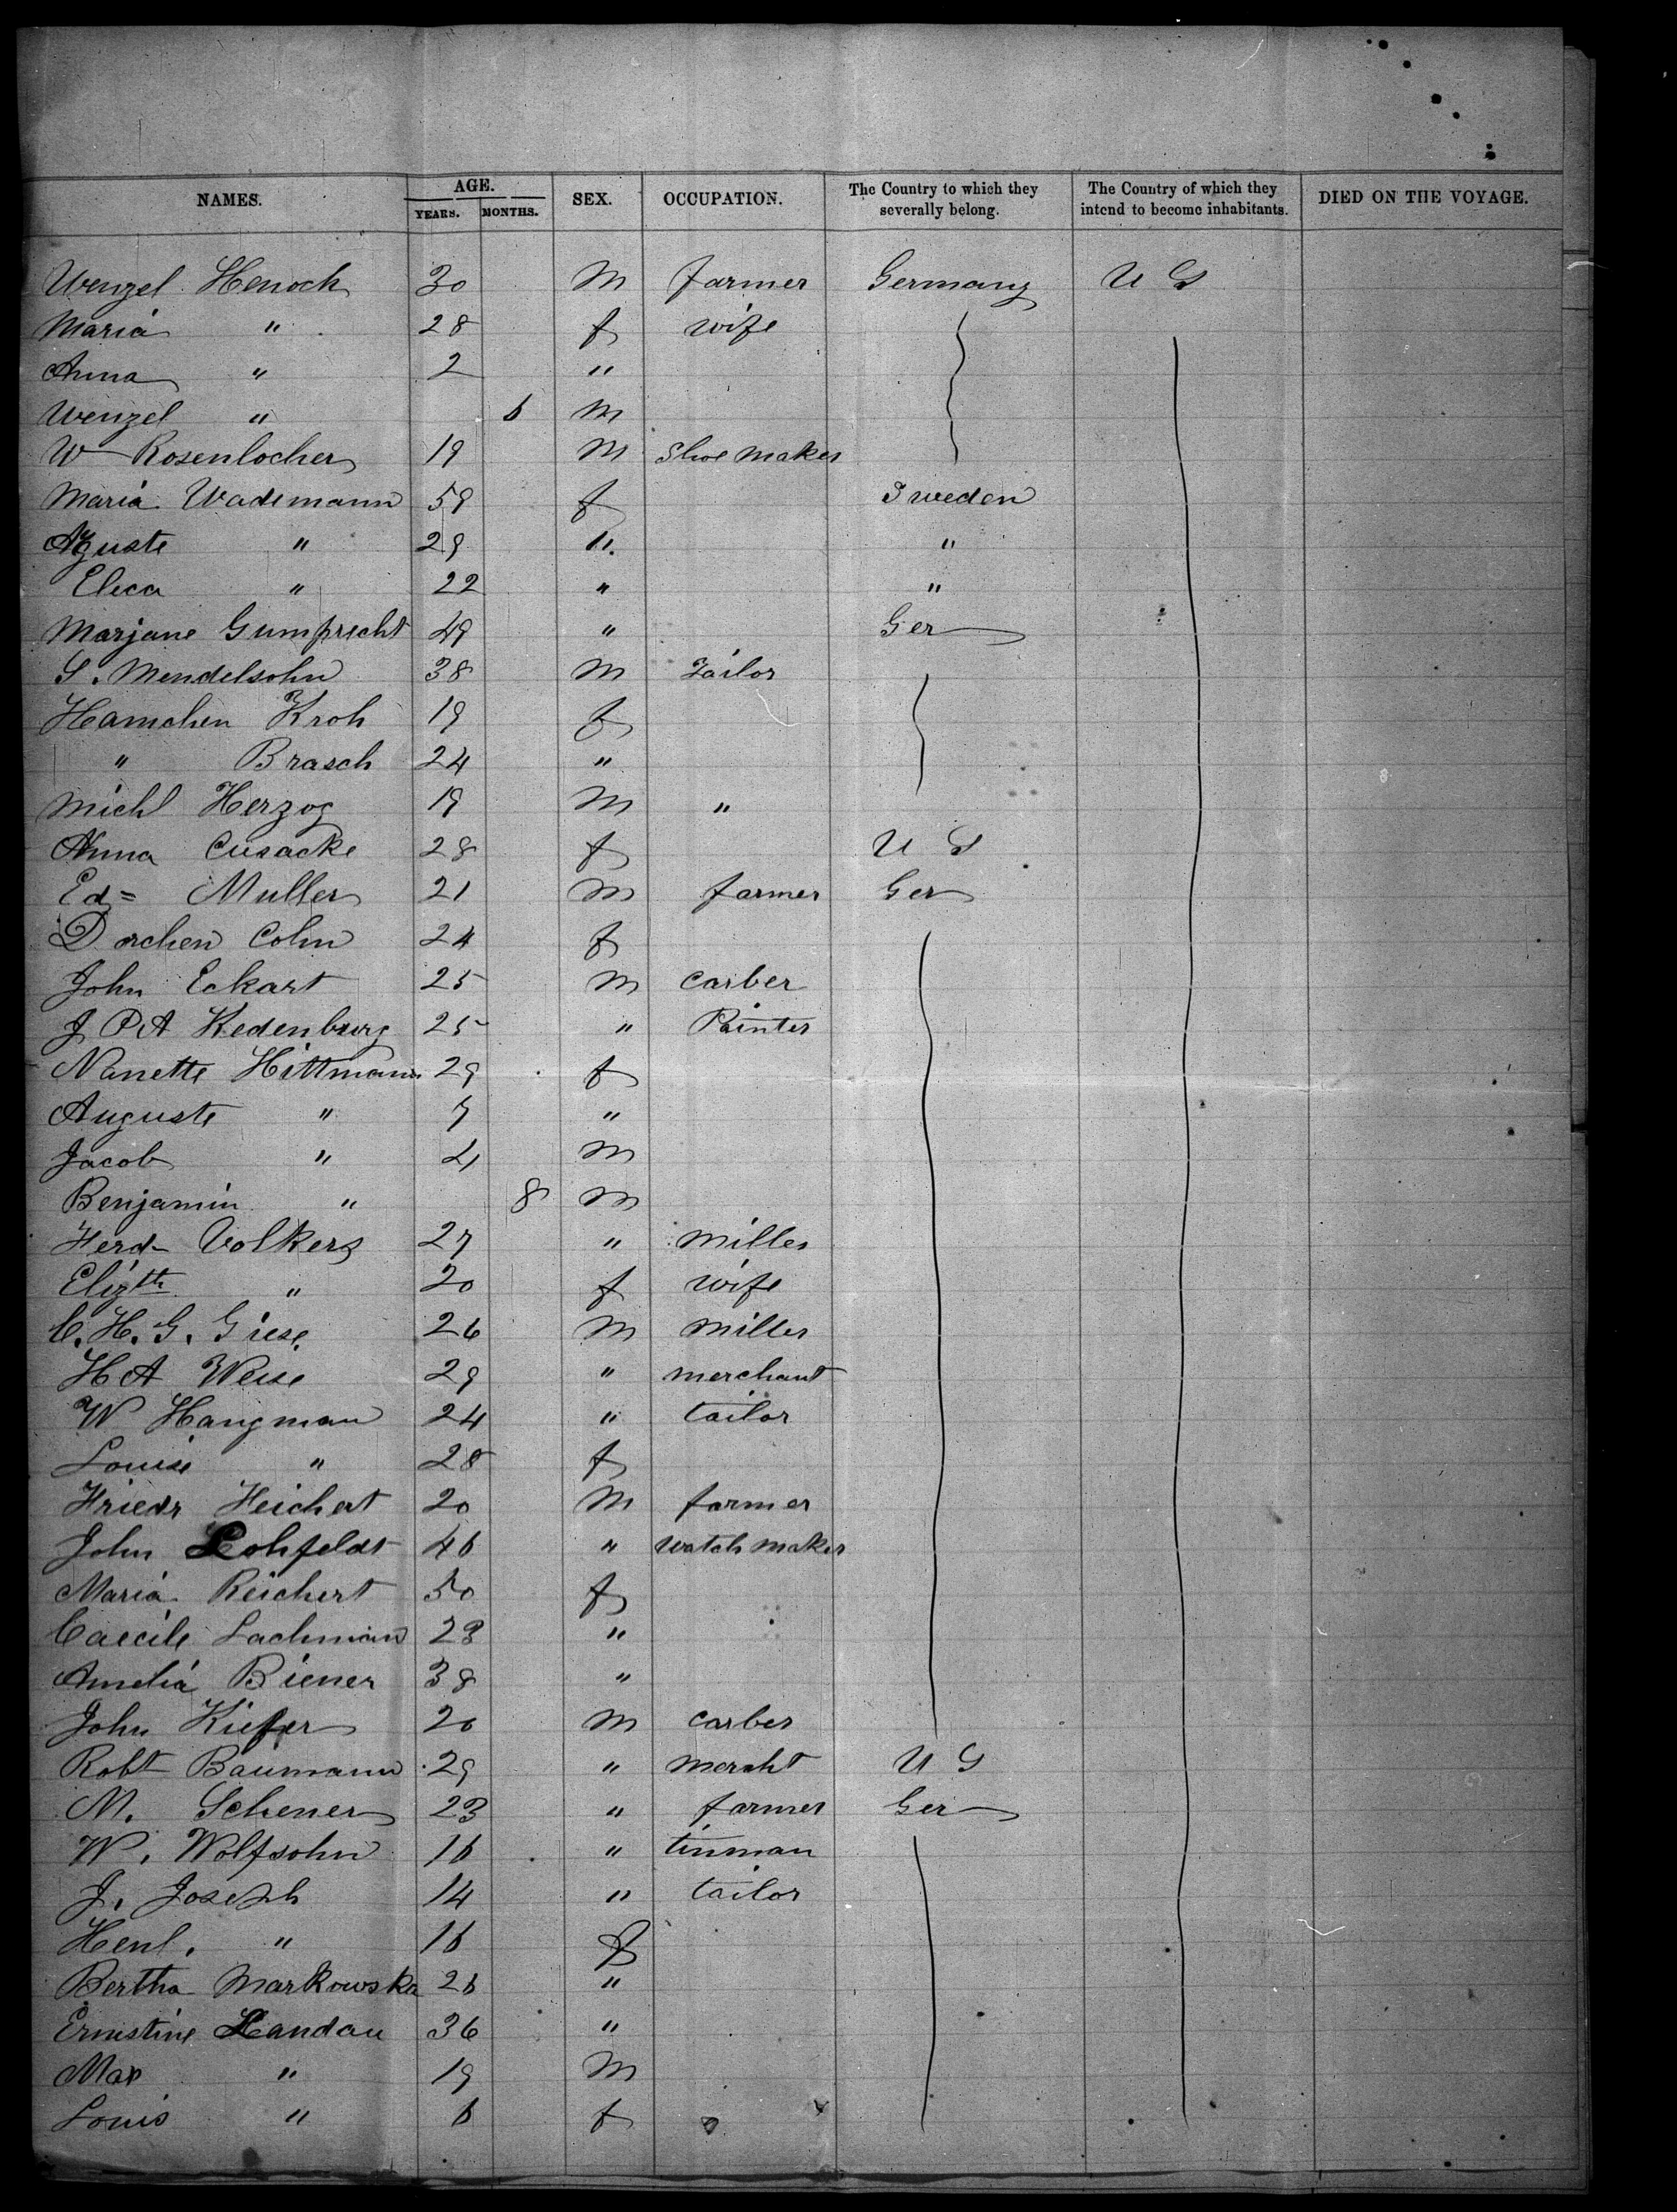 NAMES. AGE. YEARS. MONTHS. SEX. OCCUPATION. The Country to which they severally belong. The Country of which they intend to become inhabitants. DIED ON THE VOYAGE.
Wenzel Henoch 30 M farmer Germany U S
Maria " 28 f wife
Anna " 2 "
Wenzel " 6 M
W Rosenlocher 19 M Shoe maker
Maria Wademann 59 f Sweden
Aguste " 29 " "
Eleca " 22 " "
Marjane Gumprecht 49 " Ger
S. Mendelsohn 38 M Tailor
Hamchen Kroh 19 f
" Brasch 24 "
Michl Herzog 19 M "
Anna Cusacke 28 f U S
Ed= Muller 21 M farmer Ger
Dorchen Cohn 24 f
John Eckart 25 M Carber
J P A Kedenburg 25 " Painter
Nanette Hittmann 29 f
Auguste " 7 "
Jacob " 4 M
Benjamin " 8 M
Ferd- Volkers 27 " Miller
Elizth " 20 f wife
C. H. G. Giese 26 M Miller
H A Weise 29 " merchant
W Hangman 24 " tailor
Louise " 28 f
Friedr Heichert 20 M farmer
John Lohfeldt 46 " Watch maker
Maria Reichert 50 f
Caecile Lachman 23 "
Amelia Biener 38 "
John Kiefer 20 M Carber
Robt Baumann 29 " mercht U S
M. Schener 23 " farmer Ger
W. Wolfsohn 16 " tinman
J. Joseph 14 " tailor
Henl. " 16 f
Bertha Markowska 26 "
Ernestine Landau 36 "
Max " 19 M
Louis " 6 f